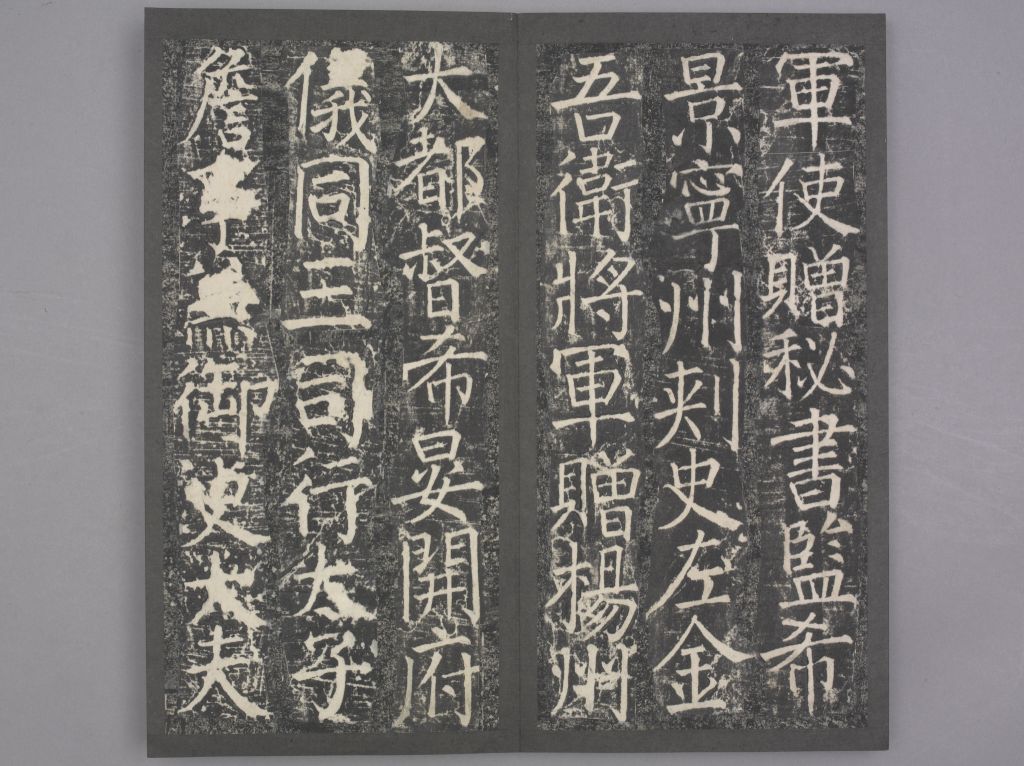 軍使贈秘書監希
景寧州刾史左金
吾衛將軍贈揚州
大都督希晏開府
儀同三司行太子
詹事兼御史大夫